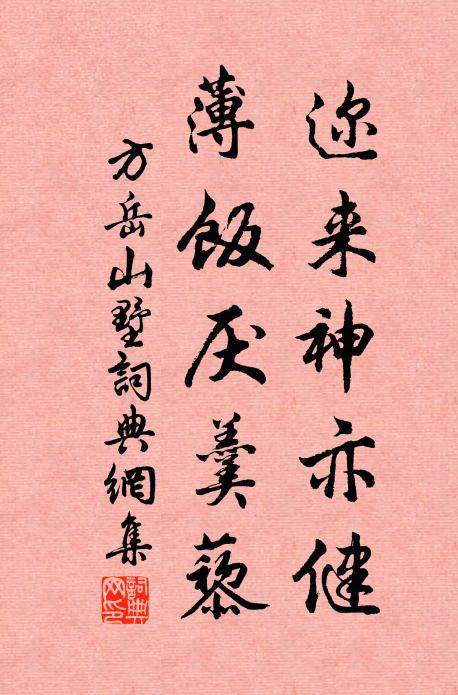 迩来神亦健
薄飯厌羹藜
方岳山墅詞典網集
詞典网印